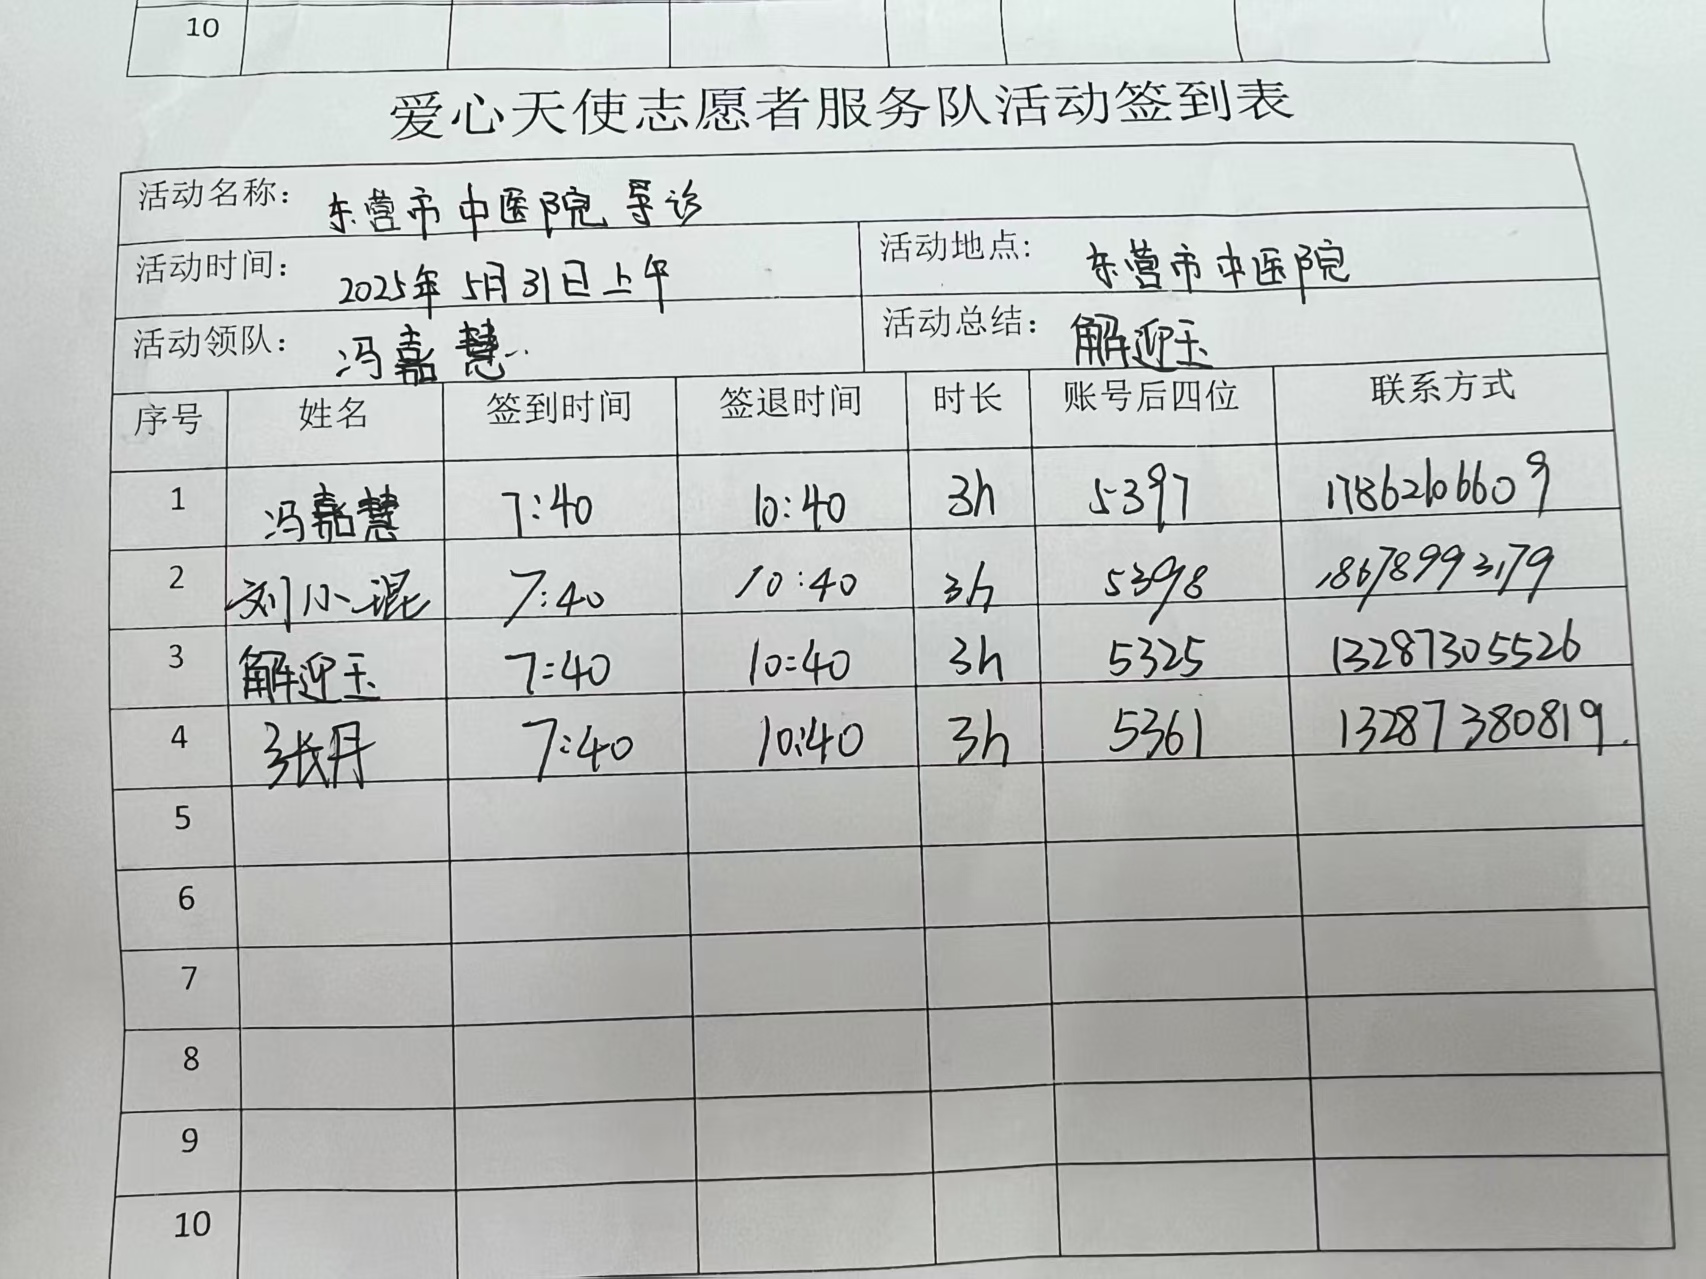 10
爱心天使志愿者服务队活动签到表
活动名称： 东营市中医院导诊
活动时间： 2025年5月31日上午 活动地点： 东营市中医院
活动领队： 冯嘉慧 活动总结： 解迎玉
序号 姓名 签到时间 签退时间 时长 账号后四位 联系方式
1 冯嘉慧 7:40 10:40 3h 5397 17862106609
2 刘小琨 7:40 10:40 3h 5398 18678993179
3 解迎玉 7:40 10:40 3h 5325 13287305526
4 张丹 7:40 10:40 3h 5361 13287380819
5
6
7
8
9
10